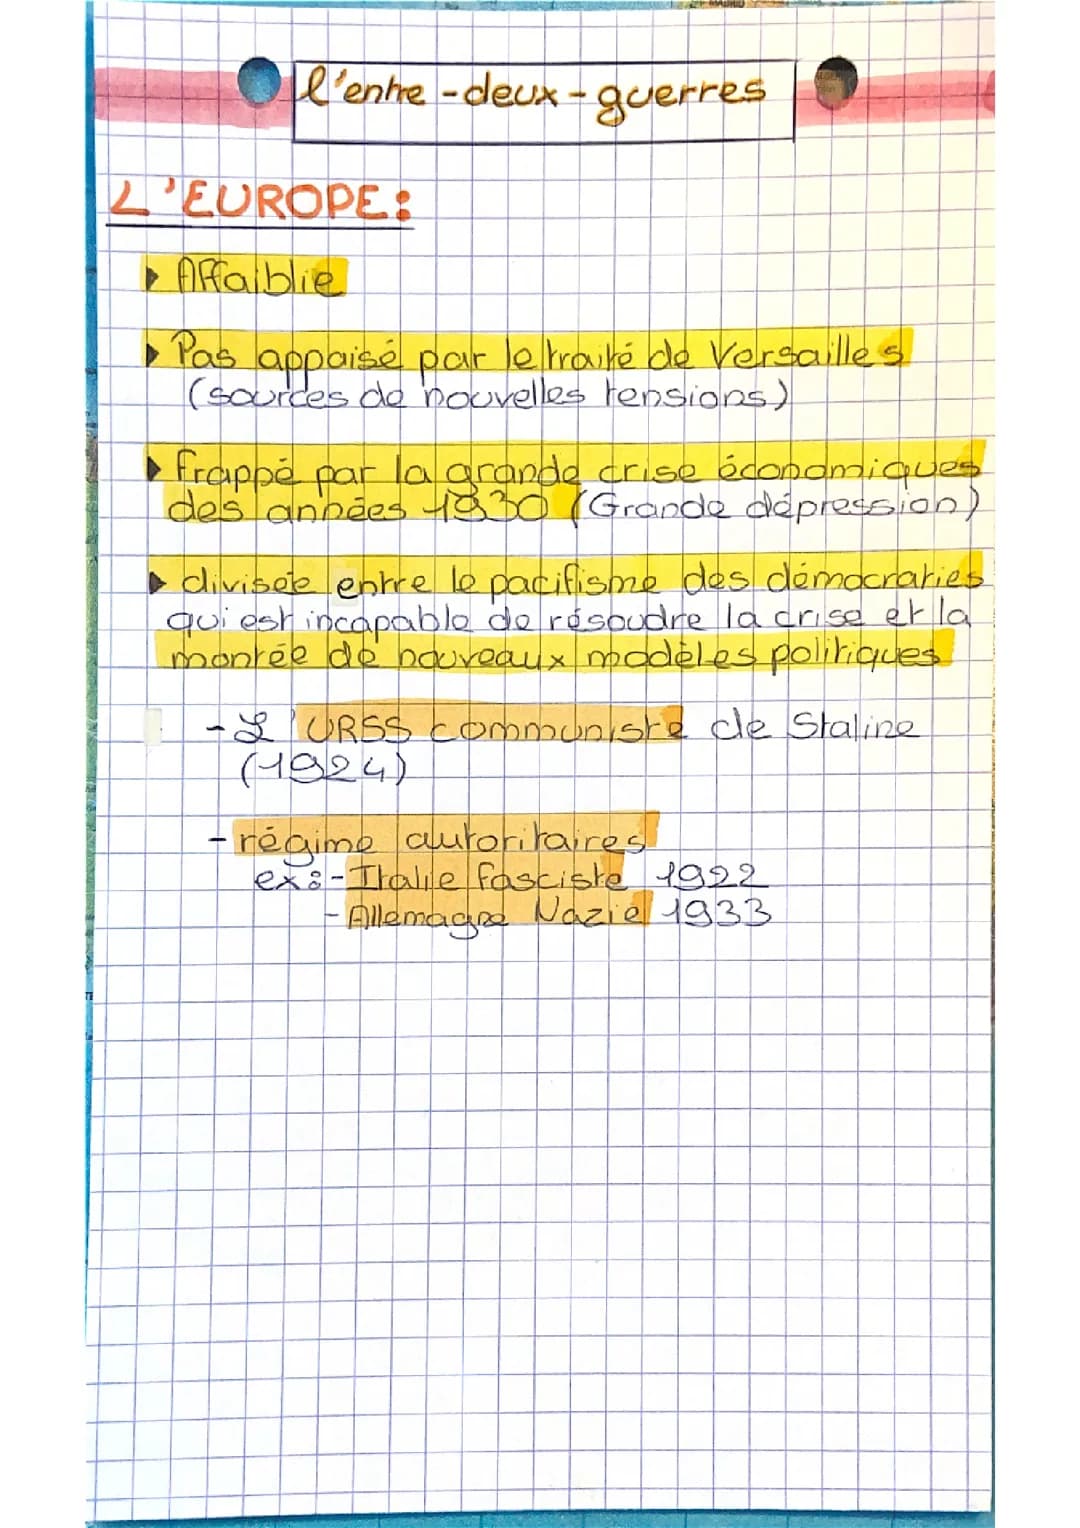 l'entre-deux-guerres
L'EUROPE:
▸ Affaiblie
▸ Pas appaisé par le traité de Versailles
(sources de nouvelles tensions)
▸ frappé par la grande crise économiques
des années 1930 (Grande dépression)
▸ divisée entre le pacifisme des démocraties
qui est incapable de résoudre la crise et la
montée de nouveaux modèles politiques
- L'URSS communiste de Staline
(1924)
- régime autoritaires
ex: - Italie fasciste 1922
- Allemagne Nazie 1933